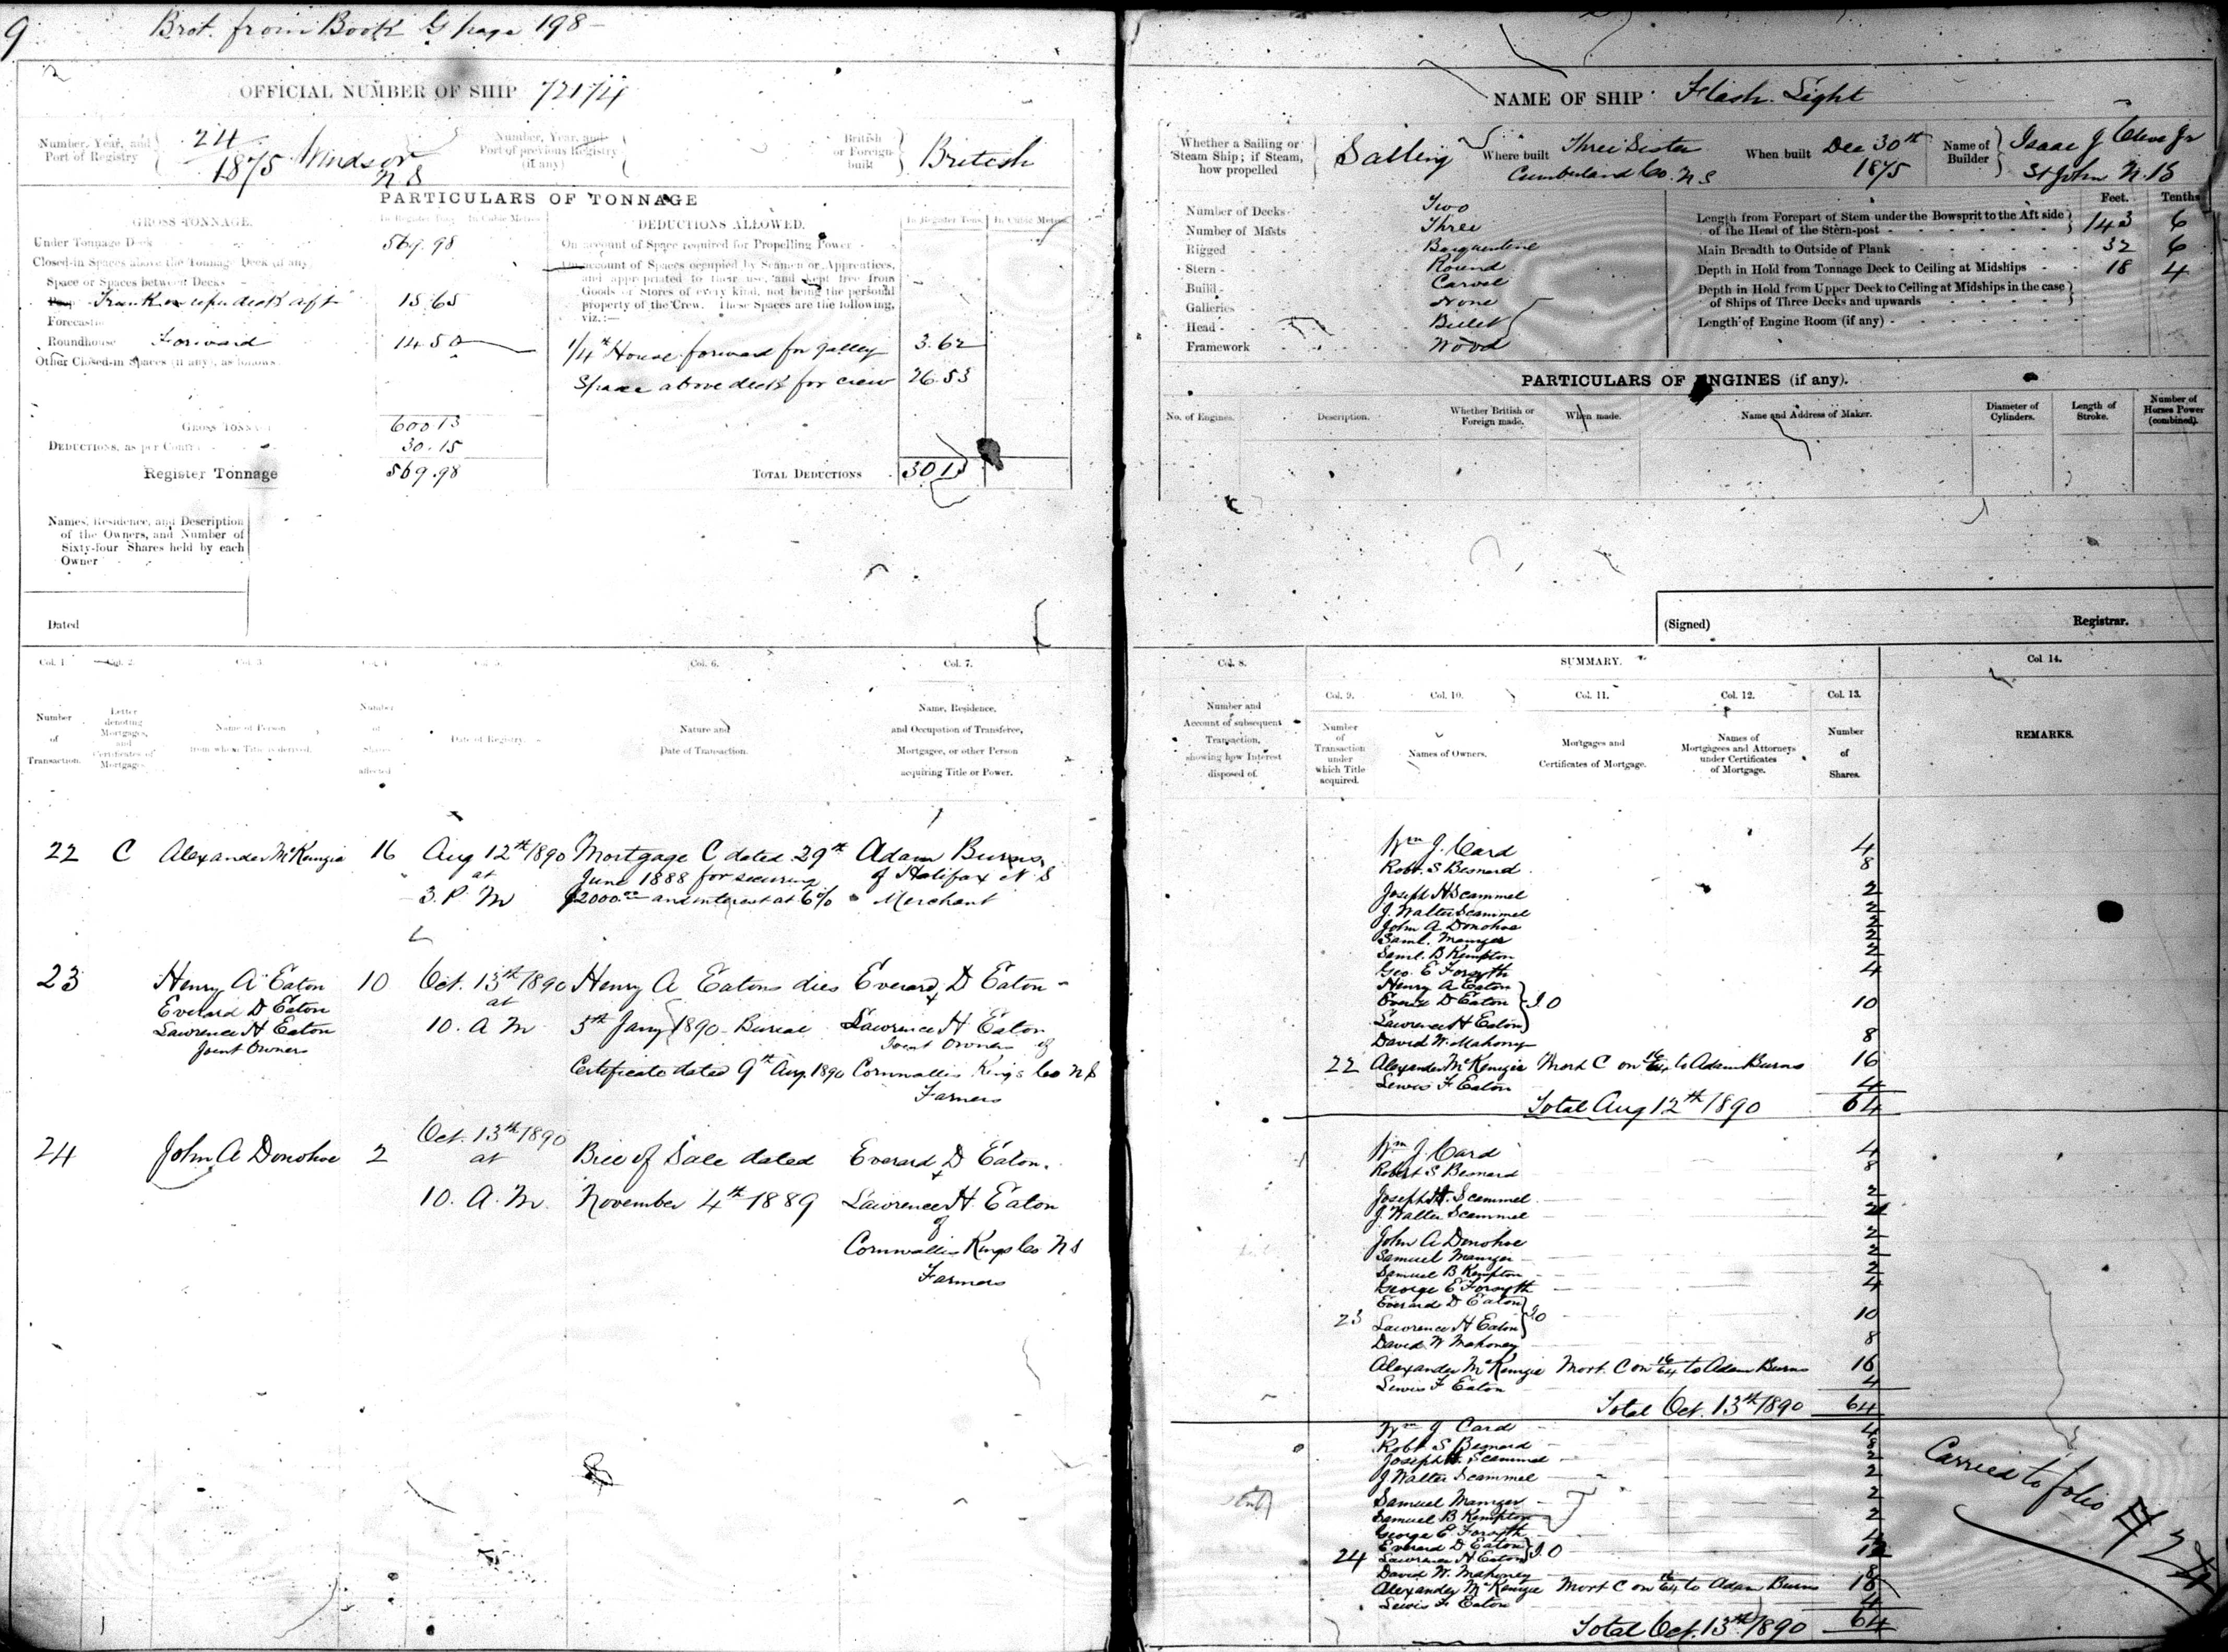 9
Brot. from Book G page 198
OFFICIAL NUMBER OF SHIP 72174
Number, Year, and Port of Registry
24
1875 Windsor
N S
Number, Year, and Port of previous Registry (if any)
British or Foreign built
British
PARTICULARS OF TONNAGE
GROSS TONNAGE.
In Register Tons
In Cubic Metres
Under Tonnage Deck 569.98
Closed-in Spaces above the Tonnage Deck (if any)
Space or Spaces between Decks
Trunk on upper deck aft 15.65
Forecastle
Roundhouse Forward 14.50
Other Closed-in Spaces (if any), as follows
GROSS TONNAGE 600 13
DEDUCTIONS, as per Contra 30.15
Register Tonnage 569.98
DEDUCTIONS ALLOWED.
In Register Tons
In Cubic Metres
On account of Space required for Propelling Power
On account of Spaces occupied by Seamen or Apprentices,
and appropriated to their use, and kept free from
Goods or Stores of every kind, not being the personal
property of the Crew. These Spaces are the following,
viz.:—
1/4th House forward for galley 3.62
Space above deck for crew 26.53
TOTAL DEDUCTIONS 30 15
Names, Residence, and Description
of the Owners, and Number of
Sixty-four Shares held by each
Owner
Dated
Col. 1
Col. 2.
Col. 3.
Col. 4
Col. 5.
Col. 6.
Col. 7.
Number of Transaction.
Letter denoting Mortgages, and Certificates of Mortgage
Name of Person from whom Title is derived.
Number of Shares affected
Date of Registry.
Nature and Date of Transaction.
Name, Residence, and Occupation of Transferee, Mortgagee, or other Person acquiring Title or Power.
22 C Alexander McKenzie 16 Aug 12th 1890 Mortgage C dated 29th Adam Burns
at June 1888 for securing of Halifax N S
3. P. M $2000.00 and interest at 6% Merchant
23 Henry A Eaton 10 Oct. 13th 1890 Henry A Eatons dies Everard D Eaton
Everard D Eaton at &
Lawrence H Eaton 10. A M 5th Jany 1890 Burial Lawrence H Eaton
Joint Owners Joint Owners of
Certificate dated 9th Aug. 1890 Cornwallis Kings Co N S
Farmers
24 John A Donohoe 2 Oct. 13th 1890 Bill of Sale dated Everard D Eaton
at &
10. A. M. November 4th 1889 Lawrence H Eaton
of
Cornwallis Kings Co N S
Farmers
NAME OF SHIP Flash Light
Whether a Sailing or Steam Ship; if Steam, how propelled
Sailing
Where built
Three Sister
Cumberland Co. N S
When built
Dec 30th
1875
Name of Builder
Isaac J
St John N. B
Number of Decks Two
Number of Masts Three
Rigged Barquentine
Stern Round
Build Carvel
Galleries None
Head Billet
Framework Wood
Feet. Tenths
Length from Forepart of Stem under the Bowsprit to the Aft side
of the Head of the Stern-post 143 6
Main Breadth to Outside of Plank 32 6
Depth in Hold from Tonnage Deck to Ceiling at Midships 18 4
Depth in Hold from Upper Deck to Ceiling at Midships in the case
of Ships of Three Decks and upwards
Length of Engine Room (if any)
PARTICULARS OF ENGINES (if any).
No. of Engines.
Description.
Whether British or Foreign made.
When made.
Name and Address of Maker.
Diameter of Cylinders.
Length of Stroke.
Number of Horses Power (combined).
(Signed)
Registrar.
Col. 8.
SUMMARY.
Col 14.
Col. 9.
Col. 10.
Col. 11.
Col. 12.
Col. 13.
Number and Account of subsequent Transaction, showing how Interest disposed of.
Number of Transaction under which Title acquired.
Names of Owners.
Mortgages and Certificates of Mortgage.
Names of Mortgagees and Attorneys under Certificates of Mortgage.
Number of Shares.
REMARKS.
Wm J. Card 4
Robt. S Besnard 8
Joseph H Scammel 2
J. Walter Scammel 2
John A Donohoe 2
Saml. 2
Saml. B Kempton 2
Geo. E Forsyth 4
Henry A Eaton
Everd D Eaton J O 10
Lawrence H Eaton
David W. Mahony 8
22 Alexander McKenzie Mort C on 16/64 to Adam Burns 16
Lewis F Eaton 4
Total Aug 12th 1890 64
Wm J. Card 4
Robert S Besnard 8
Joseph H. Scammel 2
J. Walter Scammel 2
John A Donohoe 2
Samuel 2
Samuel B Kempton 2
George E Forsyth 4
Everard D Eaton
23 Lawrence H Eaton J O 10
David W Mahoney 8
Alexander McKenzie Mort. C on 16/64 to Adam Burns 16
Lewis F Eaton 4
Total Oct. 13th 1890 64
Wm J Card 4
Robt S Besnard 8
Joseph H Scammel 2
J Walter Scammel 2
Samuel 2
Samuel B Kempton 2
George E. Forsyth 4
Everard D Eaton
24 Lawrence H Eaton J. O 12
David W. Mahoney 8
Alexander McKenzie Mort C on 16/64 to Adam Burns 16
Lewis F Eaton 4
Total Oct. 13th 1890 64
Carried to folio